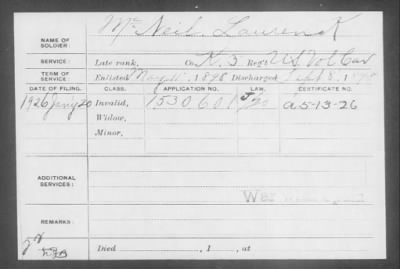 NAME OF SOLDIER: McNeil, Laurence K
SERVICE: Late rank, Co. K. 3 Reg't U S Vol Cav
TERM OF SERVICE: Enlisted May 11, 1898 Discharged Sept 8, 1898
DATE OF FILING. CLASS. APPLICATION NO. LAW. CERTIFICATE NO.
1926 Jany 20 Invalid, 1530601 a 5-13-26
Widow,
Minor,
ADDITIONAL SERVICES:
REMARKS:
Died , 1 , at